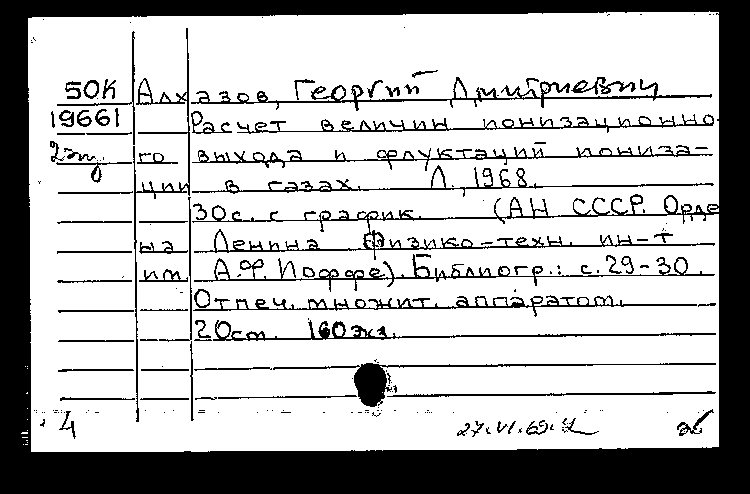 50К Алхазов, Георгий Дмитриевич
19661 Расчет величин ионизационно
2 экз го выхода и флуктаций иониза-
ции в газах. Л., 1968.
30с. с график. (АН СССР. Орде
на Ленина Физико-техн. ин-т
им. А.Ф. Иоффе). Библиогр.: с. 29-30.
Отпеч. множит. аппаратом.
20см. 160 экз.
4 27.VI.69.